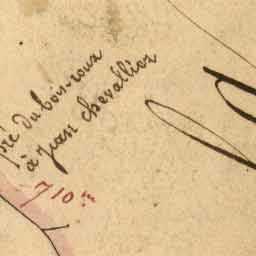 pré du bois-roux
à jean chevallier
710 m